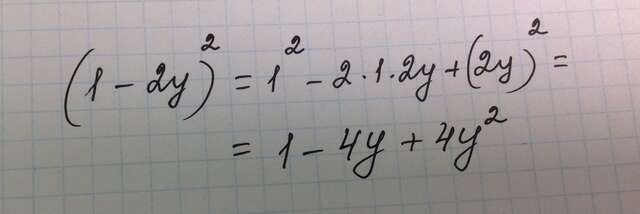 (1 - 2y)² = 1² - 2 · 1 · 2y + (2y)² =
= 1 - 4y + 4y²